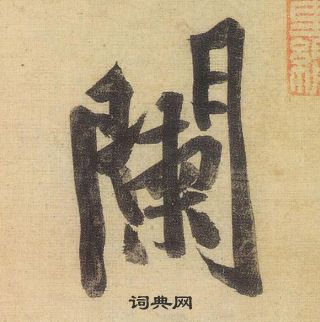 闌
词典网